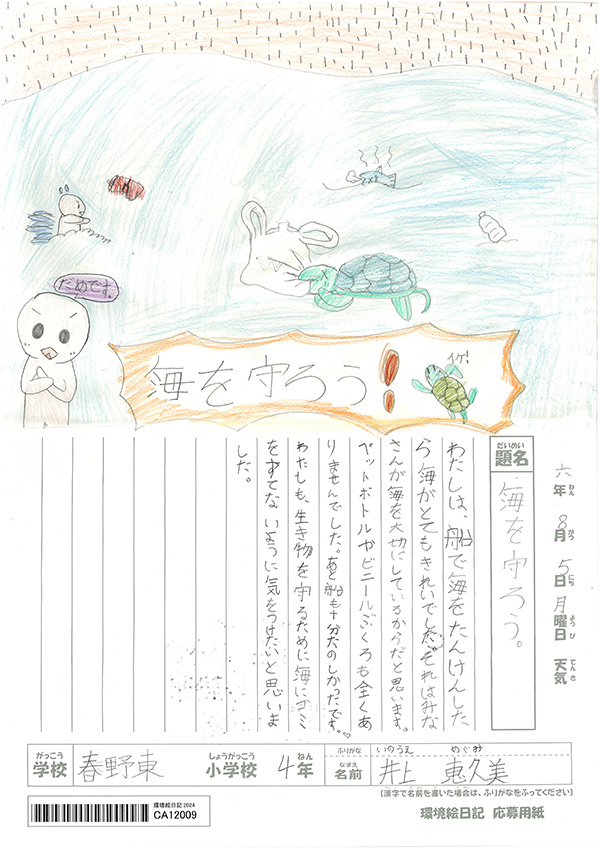 だめです。
海を守ろう!!
イケ!
六年 8月 5日 月曜日 天気
ねん がつ にち ようび てんき
だいめい
題名
海を守ろう。
わたしは、船で海をたんけんした
ら海がとてもきれいでした。それはみな
さんが海を大切にしているからだと思います。
ペットボトルやビニールぶくろも全くあ
りませんでした。あと船も十分たのしかったです。♡
わたしも、生き物を守るために海にゴミ
をすてないように気をつけたいと思いま
した。
がっこう
学校 春野東
しょうがっこう ねん
小学校 4年
ふりがな いのうえ めぐみ
なまえ
名前 井上 恵久美
(漢字で名前を書いた場合は、ふりがなをふってください)
環境絵日記 2024
CA12009
環境絵日記 応募用紙